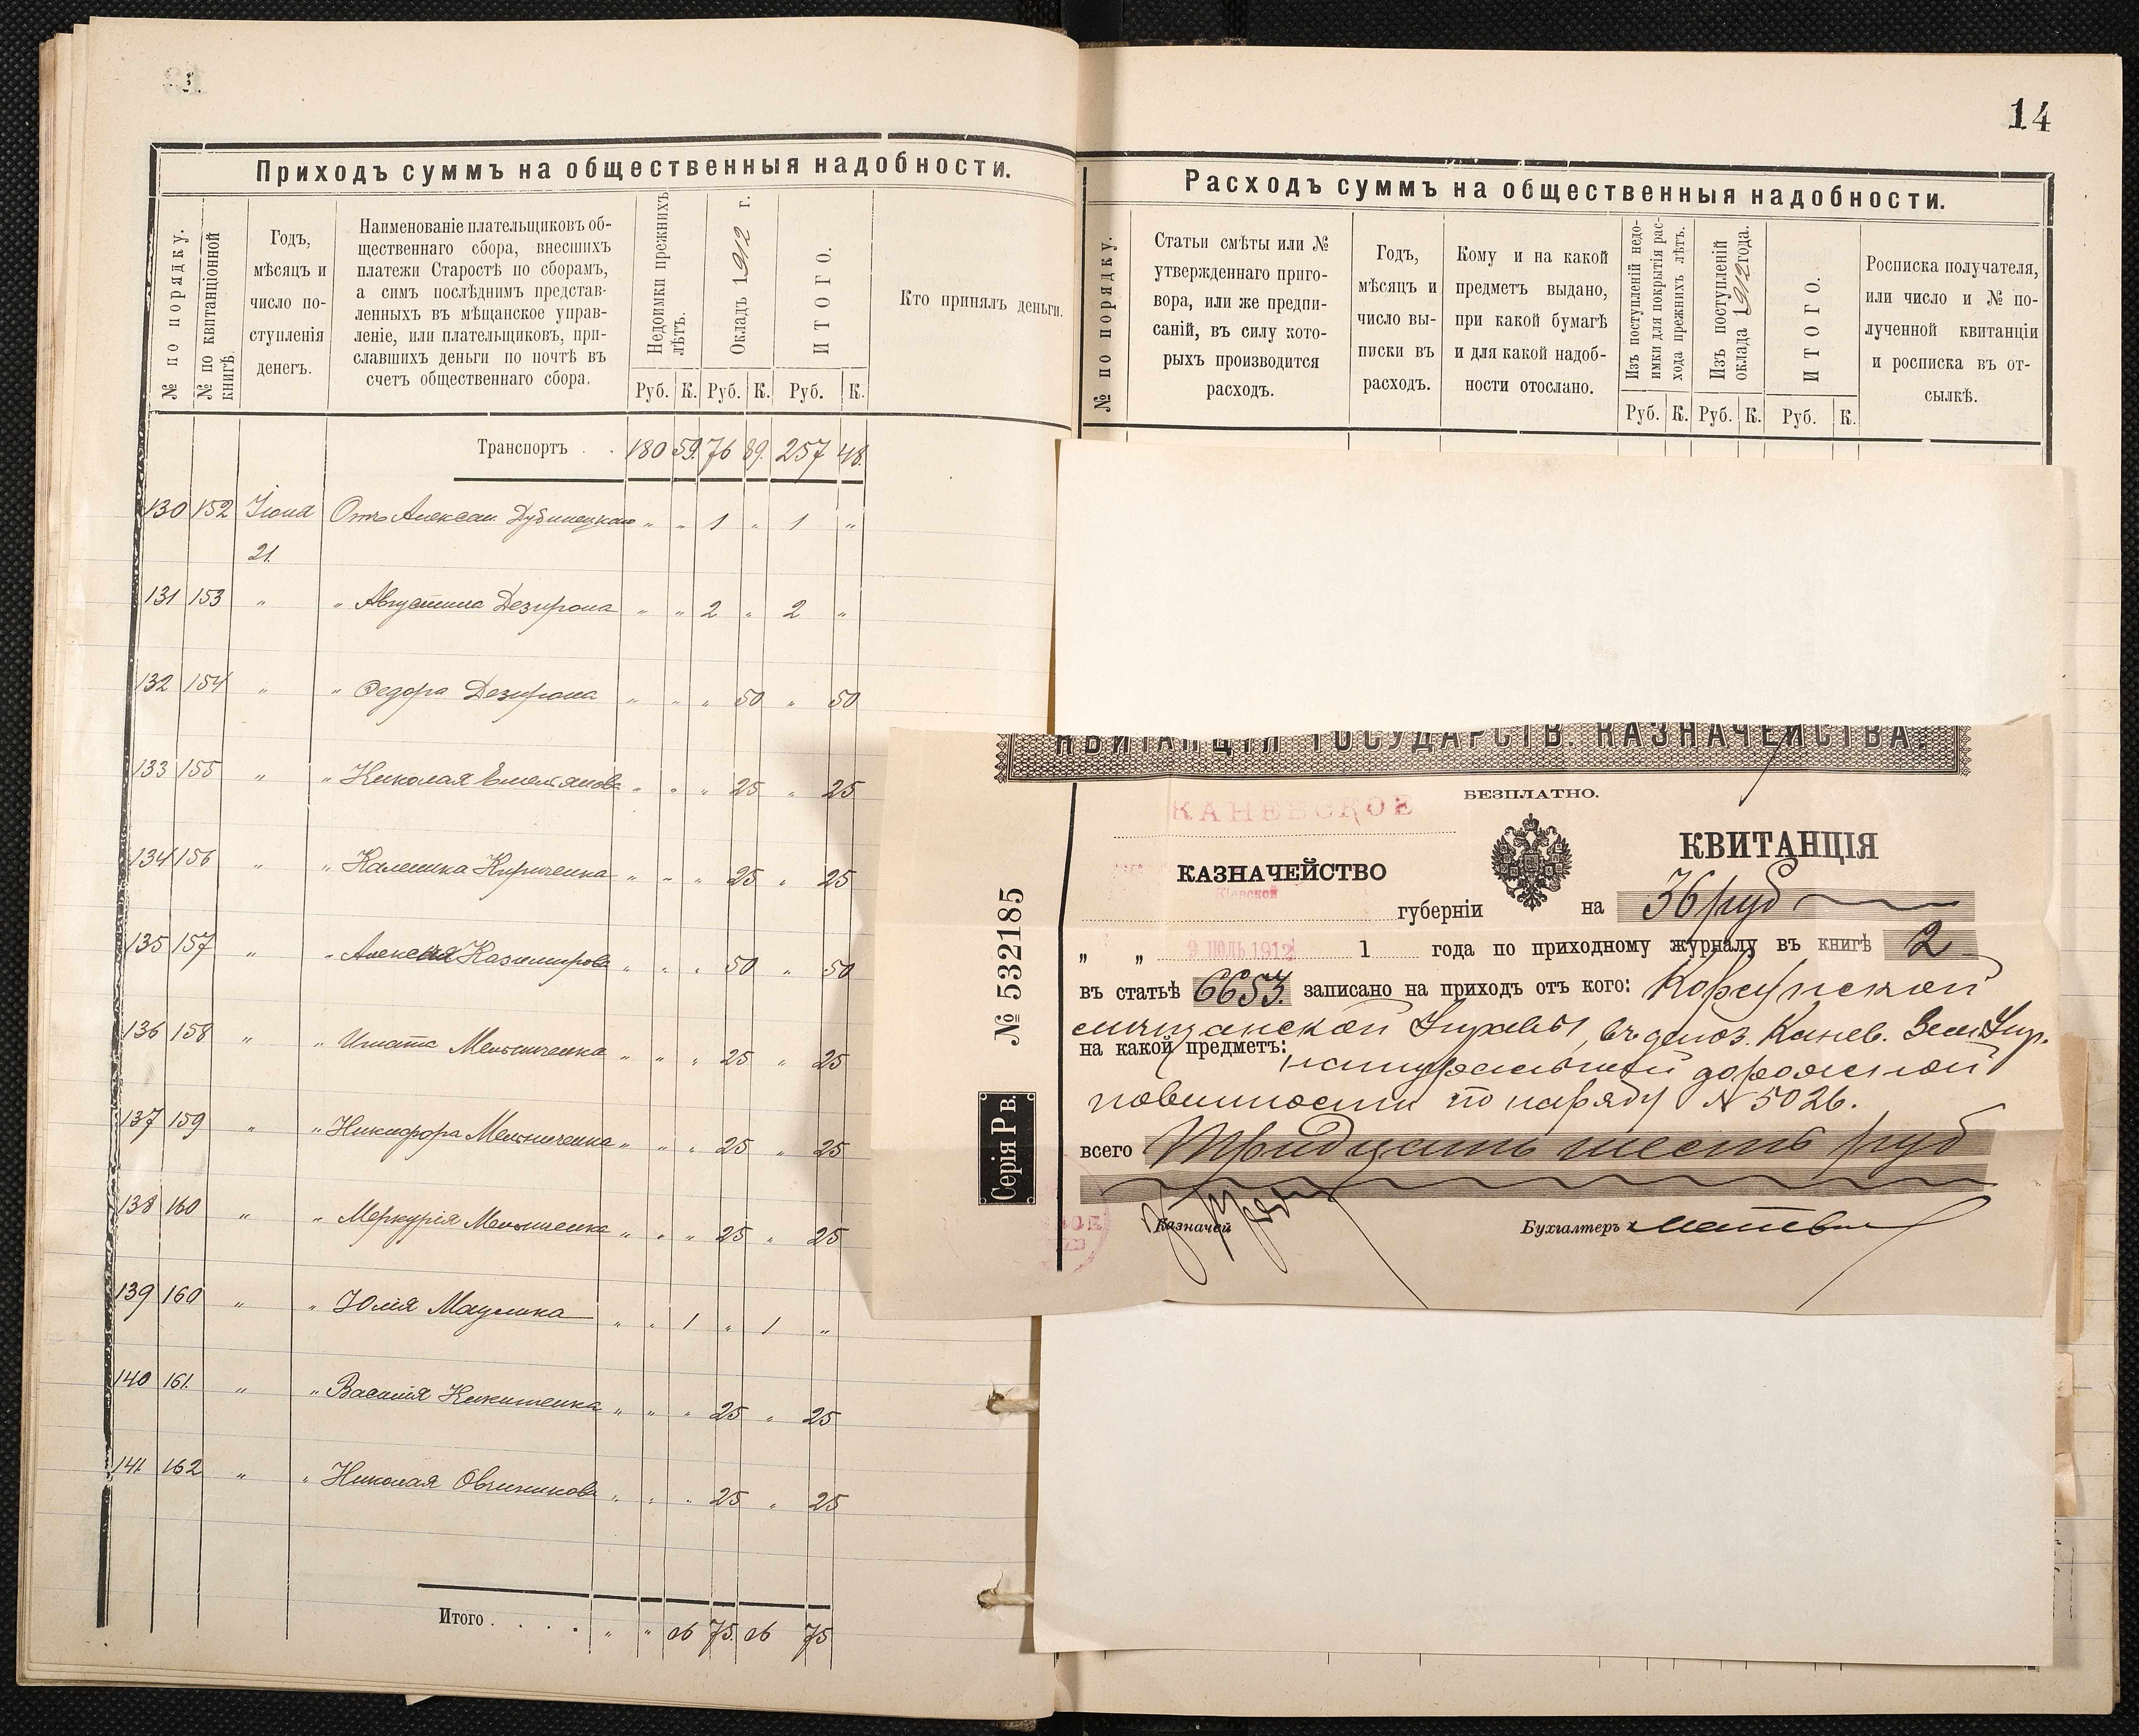 14
Приходъ суммъ на общественныя надобности.
№ по порядку.
№ по квитанціонной книгѣ.
Годъ,
мѣсяцъ и
число по-
ступленія
денегъ.
Наименованіе плательщиковъ об-
щественнаго сбора, внесшихъ
платежи Старостѣ по сборамъ,
а симъ послѣднимъ представ-
ленныхъ въ мѣщанское управ-
леніе, или плательщиковъ, при-
славшихъ деньги по почтѣ въ
счетъ общественнаго сбора.
Недоимки прежнихъ
лѣтъ.
Окладъ 1912 г.
ИТОГО.
Кто принялъ деньги.
Руб. К. Руб. К. Руб. К.
Транспортъ . . 180 59. 76 89. 257 48.
130 152 Іюня Отъ Александ. Дубинецкаго " " 1 " 1 "
21.
131 153 " " Августина Дезирона " " 2 " 2 "
132 154 " " Федора Дезирона " " " 50 " 50
133 155 " " Николая Емельянова " " " 25 " 25
134 156 " " Калиника Кириченка " " " 25 " 25
135 157 " " Алексея Казимирова " " " 50 " 50
136 158 " " Игната Мельниченка " " " 25 " 25
137 159 " " Никифора Мельниченка " " " 25 " 25
138 160 " " Меркурія Мельниченка " " " 25 " 25
139 160 " " Юлія " " 1 " 1 "
140 161. " " Василія Никитенка " " " 25 " 25
141. 162 " " Николая Овчиникова " " " 25 " 25
Итого . . . . . " " 6 75. 6 75
Расходъ суммъ на общественныя надобности.
№ по порядку.
Статьи смѣты или №
утвержденнаго приго-
вора, или же предпи-
саній, въ силу кото-
рыхъ производится
расходъ.
Годъ,
мѣсяцъ и
число вы-
писки въ
расходъ.
Кому и на какой
предметъ выдано,
при какой бумагѣ
и для какой надоб-
ности отослано.
Изъ поступленій недо-
имки для покрытія рас-
хода прежнихъ лѣтъ.
Изъ поступленій
оклада 1912 года.
ИТОГО.
Росписка получателя,
или число и № по-
лученной квитанціи
и росписка въ от-
сылкѣ.
Руб. К. Руб. К. Руб. К.
КВИТАНЦІЯ ГОСУДАРСТВ. КАЗНАЧЕЙСТВА.
БЕЗПЛАТНО.
КАНЕВСКОЕ
КАЗНАЧЕЙСТВО
КВИТАНЦІЯ
Кіевской
губерніи на 36 руб
" " 9 ІЮЛЬ 1912 1 года по приходному журналу въ книгѣ 2
въ статьѣ 6653. записано на приходъ отъ кого: Корсунской
мѣщанской Управы, въ депоз. Канев. Зем. Упр.
на какой предметъ: натуральной дорожной
повинности по наряду № 5026.
всего Тридцать шесть руб
Казначей
Бухгалтеръ
№ 532185
Серія Р в.